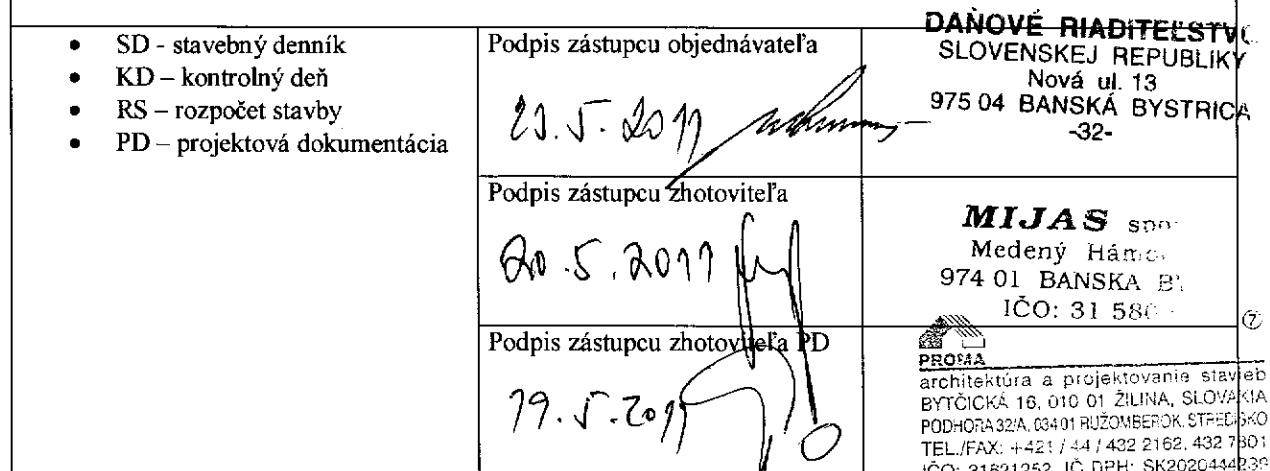 • SD - stavebný denník
• KD – kontrolný deň
• RS – rozpočet stavby
• PD – projektová dokumentácia
Podpis zástupcu objednávateľa
23.5.2011
DAŇOVÉ RIADITEĽSTV
SLOVENSKEJ REPUBLIKY
Nová ul. 13
975 04 BANSKÁ BYSTRICA
-32-
Podpis zástupcu zhotoviteľa
20.5.2011
MIJAS
Medený
974 01 BANSKA
IČO: 31 58
Podpis zástupcu zhotoviteľa PD
19.5.2011
PROMA
architektúra a projektovanie stavieb
BYTČICKÁ 16, 010 01 ŽILINA, SLOVAKIA
PODHORA 32/A, 03401 RUŽOMBEROK, STREDISKO
TEL./FAX: +421 / 44 / 432 2162, 432 7801
IČO: 31621252 IČ DPH: SK2020444239
7